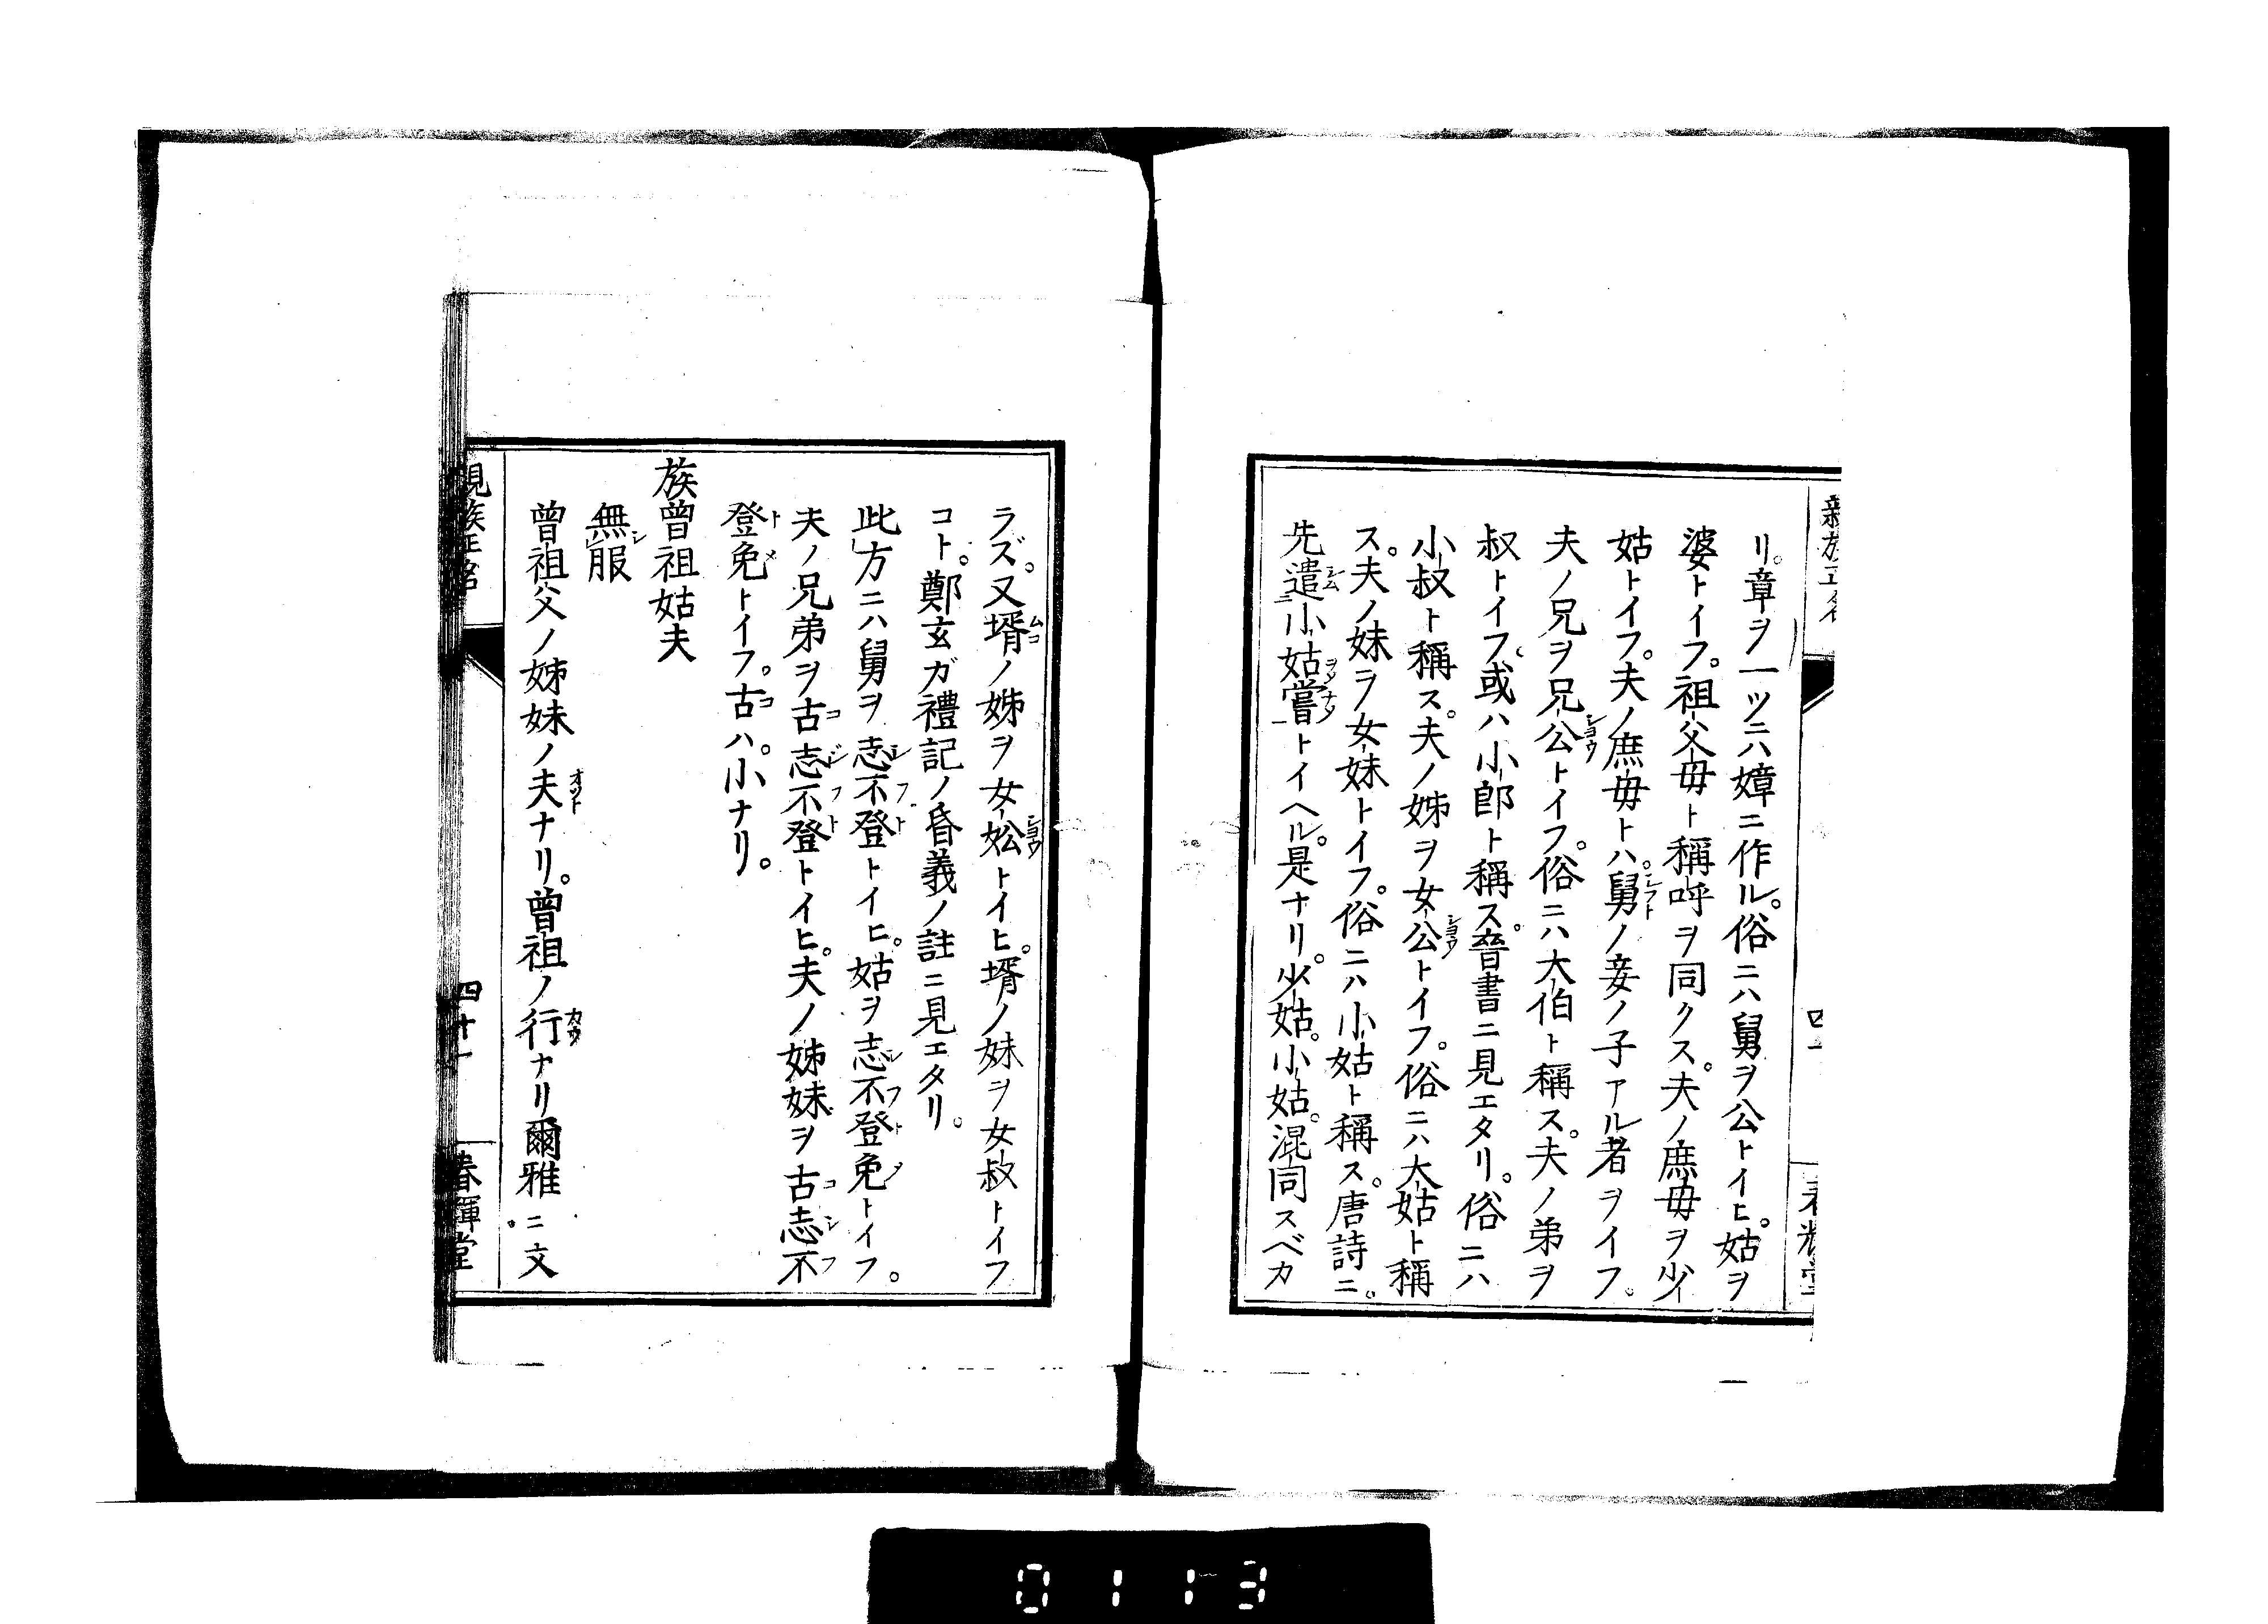 リ。章ヲ一ツニハ嫜ニ作ル。俗ニハ舅ヲ公トイヒ。姑ヲ
婆トイフ。祖父母ト稱呼ヲ同クス。夫ノ庶母ヲ少
姑トイフ。夫ノ庶母トハ。舅ノ妾ノ子アル者ヲイフ。
夫ノ兄ヲ兄公トイフ。俗ニハ大伯ト稱ス。夫ノ弟ヲ
叔トイフ。或ハ小郎ト稱ス。晉書ニ見エタリ。俗ニハ
小叔ト稱ス。夫ノ姊ヲ女公トイフ。俗ニハ大姑ト稱
ス。夫ノ妹ヲ女妹トイフ。俗ニハ小姑ト稱ス。唐詩ニ。
先遣小姑嘗トイヘル。是ナリ。少姑。小姑。混同スベカ
ラズ。又壻ノ姊ヲ女妐トイヒ。壻ノ妹ヲ女叔トイフ
コト。鄭玄ガ禮記ノ昏義ノ註ニ見エタリ。
此方ニハ舅ヲ志不登トイヒ。姑ヲ志不登免トイフ。
夫ノ兄弟ヲ古志不登トイヒ。夫ノ姊妹ヲ古志不
登免トイフ。古ハ。小ナリ。
族曾祖姑夫
無服
曾祖父ノ姊妹ノ夫ナリ。曾祖ノ行ナリ爾雅ニ。文
親族正名
四十一
春暉堂
0113